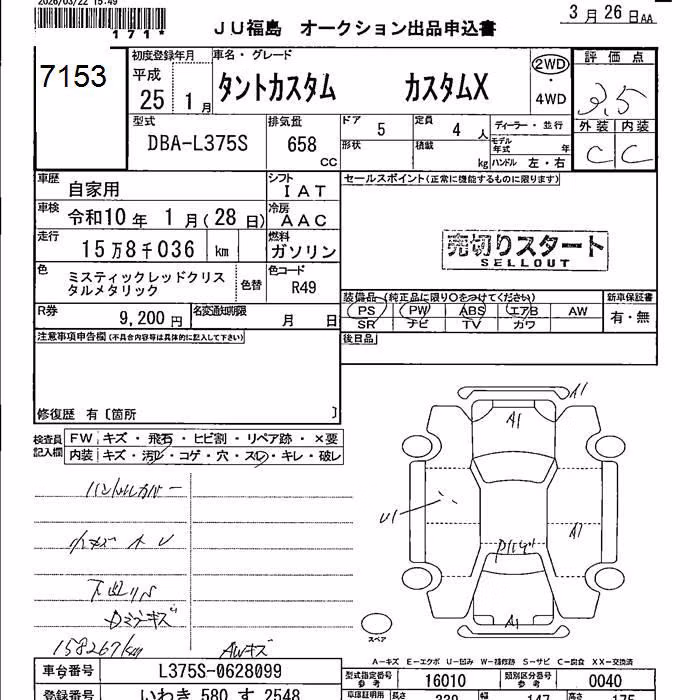 2026/03/22 15:49
171*
JU福島 オークション出品申込書
3月26日AA
7153
初度登録年月
平成
25 1月
車名・グレード
タントカスタム カスタムX
2WD
・
4WD
評価点
3.5
外装 内装
C C
型式
DBA-L375S
排気量
658
CC
ドア 5
定員 4 人
ディーラー・並行
モデル年式 年
形状
積載 kg
ハンドル 左・右
車歴 自家用
シフト IAT
セールスポイント(正常に機能するものに限ります)
車検 令和10年 1月(28日)
冷房 AAC
走行 15万8千036 km
燃料 ガソリン
売切りスタート
SELLOUT
色 ミスティックレッドクリスタルメタリック
色替
色コード R49
装備品(純正品に限り○をつけてください)
新車保証書
PS PW ABS エアB AW
SR ナビ TV カワ
有・無
R券 9,200円
名変通知期限 月 日
後日品
注意事項申告欄(不具合内容等は具体的に記入して下さい)
修復歴 有〔箇所 〕
検査員記入欄
FW キズ・飛石・ヒビ割・リペア跡・×要
内装 キズ・汚レ・コゲ・穴・スレ・キレ・破レ
ハンドルカバー
小キズ
158267km
AWキズ
A1
A1
U1
A1
A1
スペア
A-キズ E-エクボ U-凹み W-補修跡 S-サビ C-腐食 XX-交換済
車台番号 L375S-0628099
型式指定番号参考 16010
類別区分番号参考 0040
登録番号 いわき 580 す 2548
車庫証明用 長さ 339 幅 147 高さ 175